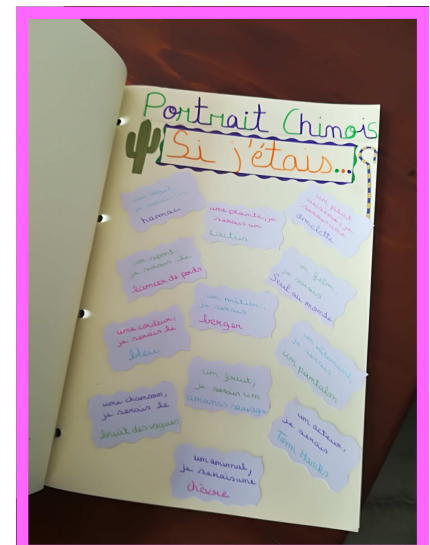 Portrait Chinois
Si j'étais...
un objet,
je serais un
hamac
une plante, je
serais un
cactus
un plat
cuisiné, je
serais une
omelette
un sport,
je serais le
lancer de poids
un film,
je serais
Seul au monde
un métier,
je serais
berger
une couleur,
je serais le
bleu
un vêtement,
je serais
un pantalon
un fruit,
je serais un
ananas sauvage
une chanson,
je serais le
bruit des vagues
un acteur,
je serais
Tom Hanks
un animal,
je serais une
chèvre